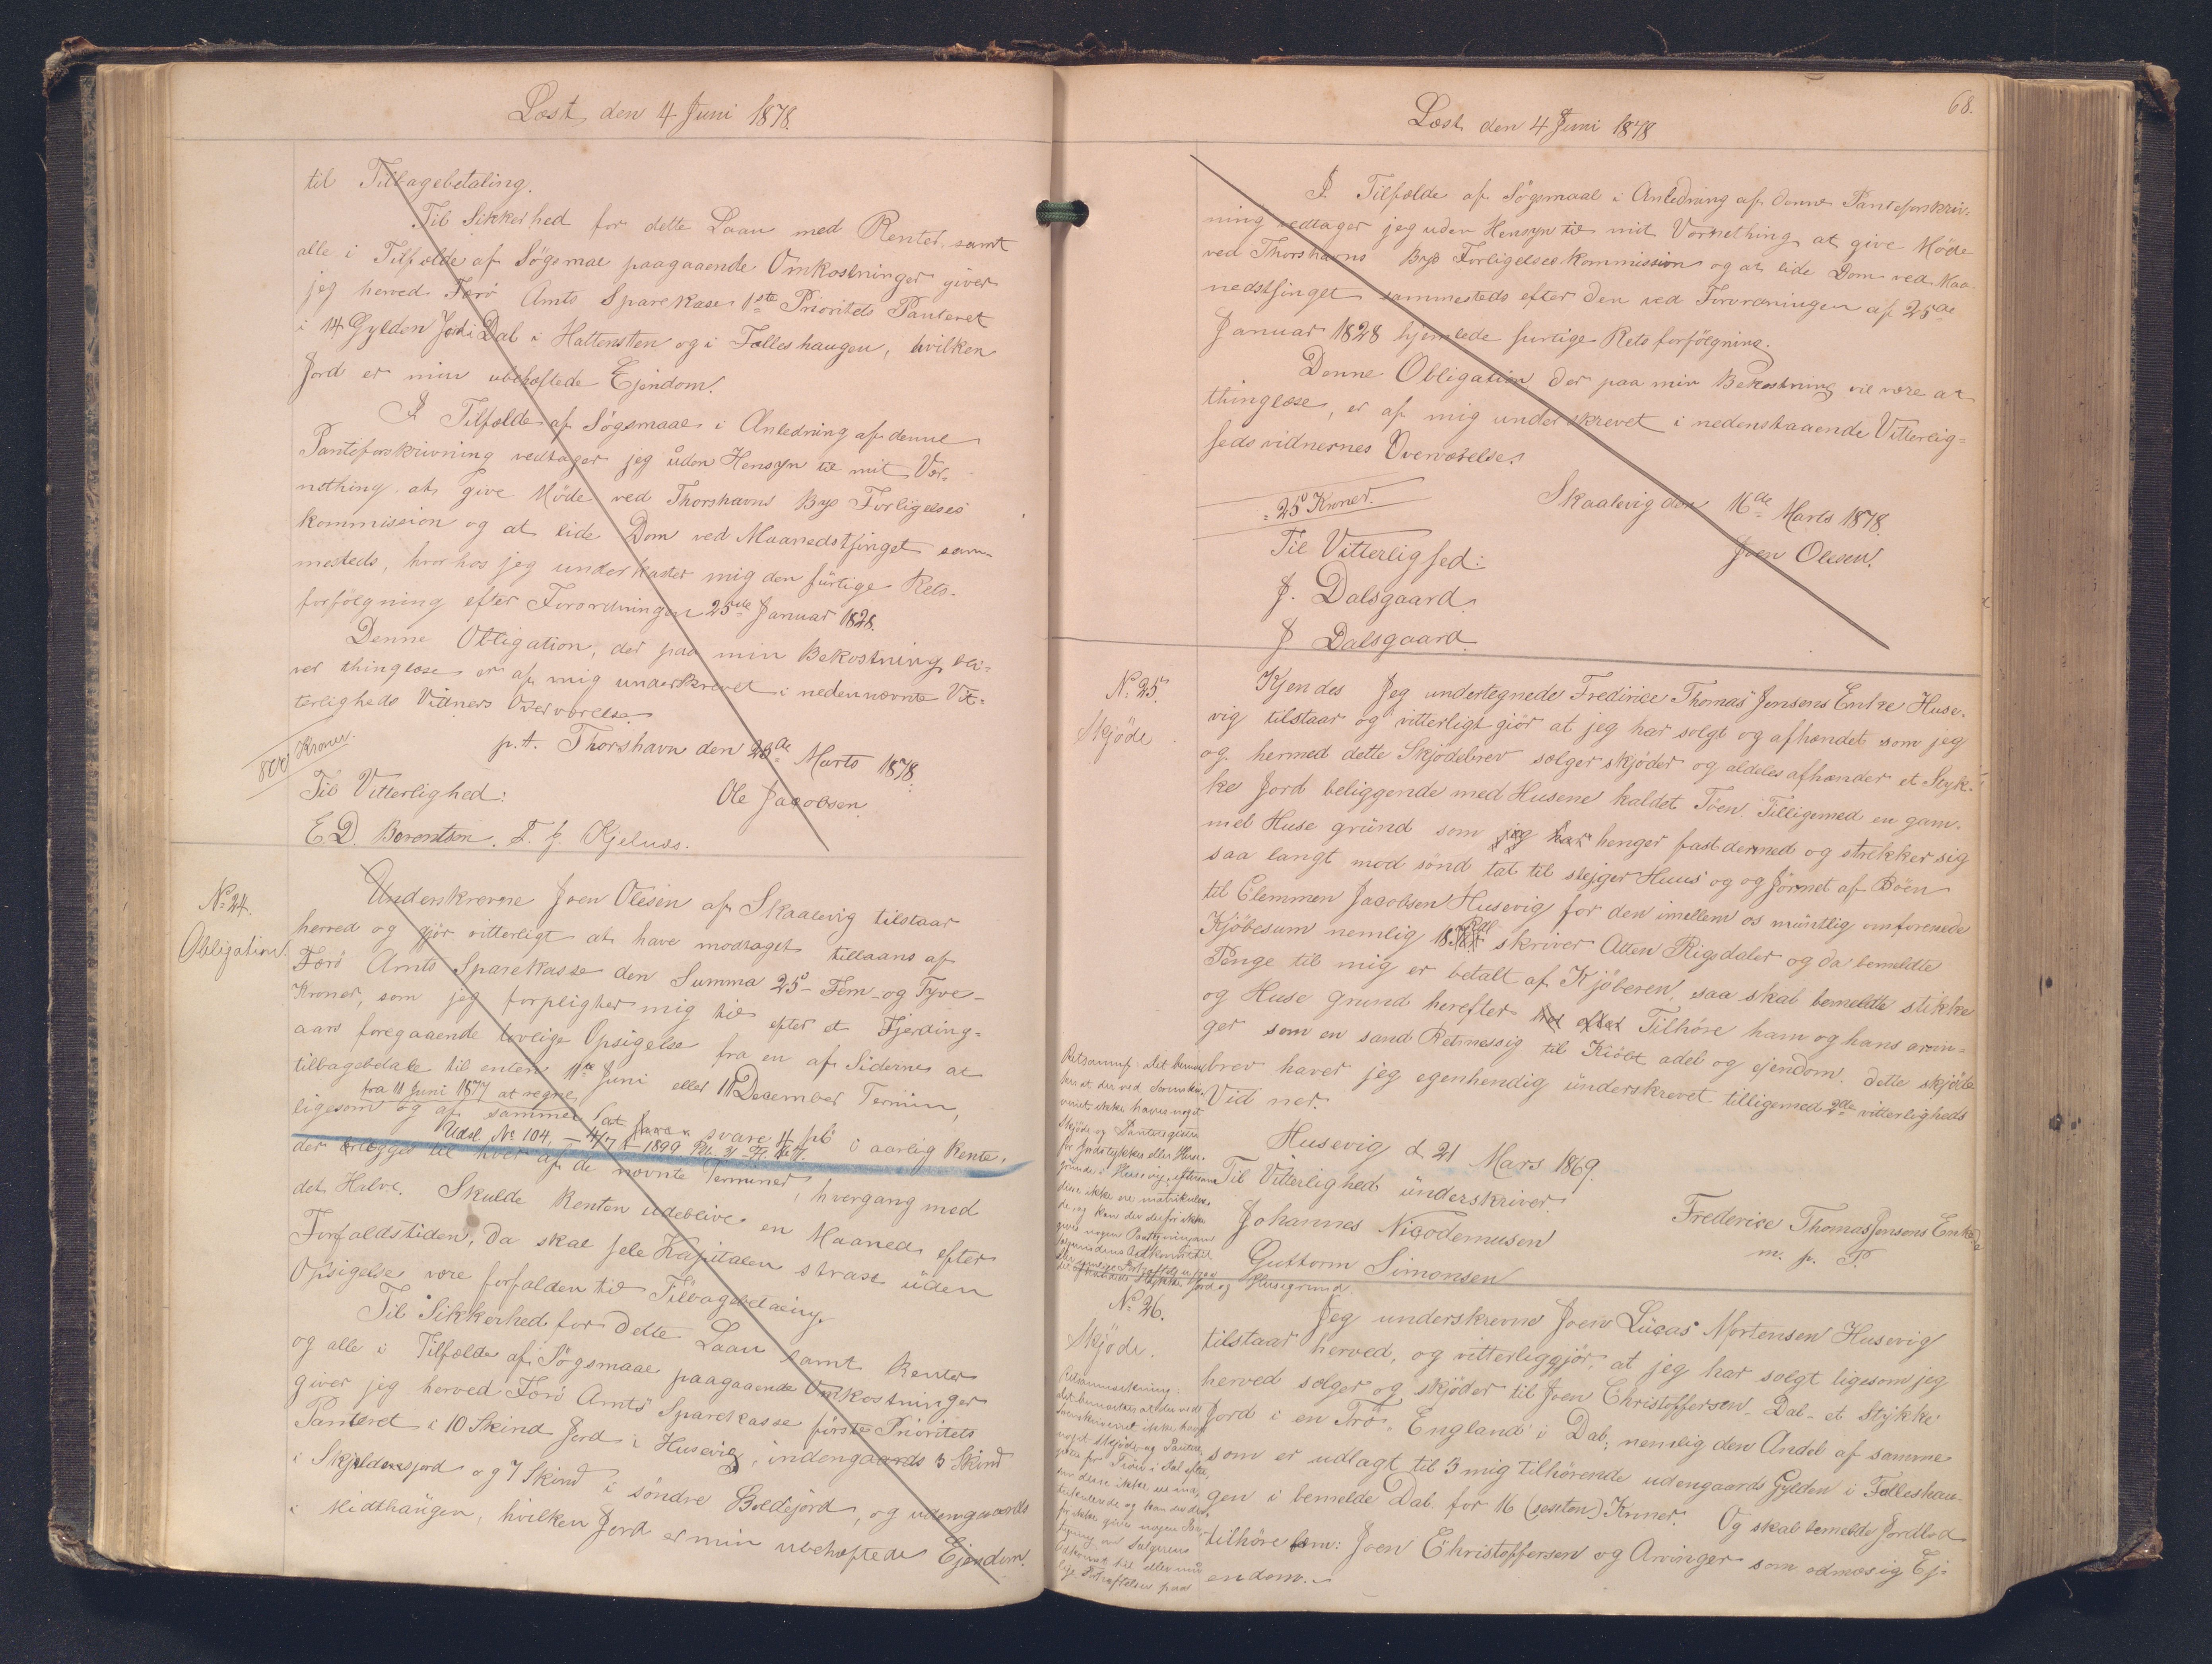 Læst den 4 Juni 1878.
til Tilbagebetaling.
Til Sikkerhed for dette Laan med Renter samt
alle i Tilfælde af Sögsmal paagaaende Omkostninger giver
jeg herved Færö Amts Sparekasse 1ste Prioritets Panteret
i 14 Gylden Jord i Dal i Hattensten og i Fælleshaugen, hvilken
Jord er min ubehæftede Ejendom.
I Tilfælde af Sögsmaal i Anledning af denne
Panteforskrivning vedtager jeg uden Hensyn til mit Vær-
nething at give Möde ved Thorshavns Bys Forligelses
kommission og at lide Dom ved Maanedsthinget sam-
mesteds, hvorhos jeg underkaster mig den hurtige Rets-
forfölgning efter Forordningen 25de Januar 1828.
Denne Obligation, der paa min Bekostning bli-
ver thinglæse er af mig underskrevet i nedennævnte Vit-
terligheds Vidners Overværelse.
800 Kroner.
p.t. Thorshavn den 28de Marts 1878.
Til Vitterlighed: Ole Jacobsen.
E. D. Berentsen. F. J. Kjeluss.
No 24.
Obligation.
Underskrevne Joen Olesen af Skaalevig tilstaar
herved og gjör vitterligt at have modtaget tillaans af
Færö Amts Sparekasse den Summa 25 - Fem - og Tyve -
Kroner, som jeg forpligter mig til efter et Fjerding-
aars foregaaende lovlige Opsigelse fra en af Siderne at
tilbagebetale til enten 11te Juni eller 11 December Termin,
fra 11 Juni 1877 at regne
ligesom og af samme at svare 4 pCt i aarlig Rente,
Udsl. No 104, - 4/7 - 1899
der erlægges til hver af de nævnte Terminer, hvergang med
det Halve. Skulde Renten udeblive en Maaned efter
Forfaldstiden, da skal hele Kapitalen strax uden
Opsigelse være forfalden til Tilbagebetaling.
Til Sikkerhed for dette Laan samt Renter
og alle i Tilfælde af Sögsmaal paagaaende Omkostninger
giver jeg herved Færö Amts Sparekasse förste Prioritets
Panteret i 10 Skind Jord i Husevig, indengaards 3 Skind
i Skjeldensjord og 7 Skind i söndre Boldejord, og udengaards
i Midthaugen, hvilken Jord er min ubehæftede Ejendom.
68.
Læst den 4 Juni 1878
I Tilfælde af Sögsmaal i Anledning af denne Panteforskriv-
ning vedtager jeg uden Hensyn til mit Værnething at give Möde
ved Thorshavns Bys Forligelseskommission og at lide Dom ved Maa-
nedsthinget sammesteds efter den ved Forordningen af 25de
Januar 1828 hjemlede hurtige Retsforfölgning.
Denne Obligation der paa min Bekostning vil være at
thinglæse, er af mig underskrevet i nedenstaaende Vitterlig-
hedsvidnernes Overværelse.
= 25 Kroner.
Skaalevig den 16de Marts 1878.
Til Vitterlighed: Joen Olesen.
J. Dalsgaard.
J Dalsgaard.
No 25.
Skjöde
Kjendes Jeg undertegnede Frederice Thomas Jensens Enke Huse-
vig tilstaar og vitterligt giör at jeg har solgt og afhændet som jeg
og hermed dette Skjödebrev sælger skjöder og aldeles afhænder et Styk-
ke Jord beliggende med Husene kaldet Töen. Tilligemed en gam-
mel Huse grund som jeg har henger fast dermed og strækker sig
saa langt mod sönd tat til slejger Huus og og Jörmet af Böen
til Clemmen Jacobsen Husevig for den imellem os müntlig omforenede
Kjöbesum nemlig 18 Rdl skriver Atten Rigsdaler og da bemeldte
Penge til mig er betalt af Kjöberen, saa skal bemeldte stikke
og Huse grund herefter Tilhöre ham og hans arvin-
ger som en sand Retmessig til Kiöbt adel og ejendom. dette skjöde
brev haver jeg egenhendig ünderskrevet tilligemed 2de vitterligheds
Vid ner.
Husevig d 21 Mars 1869.
Til Vitterlighed ünderskriver.
Johannes Nicodemusen Frederice Thomas Jensens Enke
Guttorm Simonsen m. p. P.
Retsanmf: Det bemær-
kes at der ved Sorenskri-
veriet ikke haves noget
Skjöde og Panteregister
for Jordstykker eller Huse-
grunde i Husevig, eftersom
disse ikke ere matrikulere-
de, og kan der derfor ikke
gives nogen
Jord og Husegrund.
No 26.
Skjöde.
Jeg underskrevne Joen Lücas Mortensen Husevig
tilstaar herved, og vitterliggjör, at jeg har solgt ligesom jeg
herved sælger og skjöder til Joen Christoffersen - Dal - et Stykke
Jord i en Trö "England" i Dal; nemlig den Andel af samme
som er udlagt til 3 mig tilhörende udengaards Gylden i Fælleshau-
gen i bemelde Dal for 16 (sexten) Kroner. Og skal bemeldte Jordlod
tilhöre bem: Joen Christoffersen og Arvinger som odmæsig Ej-
endom.-
Retsanmærkning:
det bemærkes at der ved
Sorenskriveriet ikke haves
noget Skjöde og Pantere-
gister for Tröer i Dal efter-
som disse ikke ere ma-
trikulerede og kan der der-
for ikke gives nogen